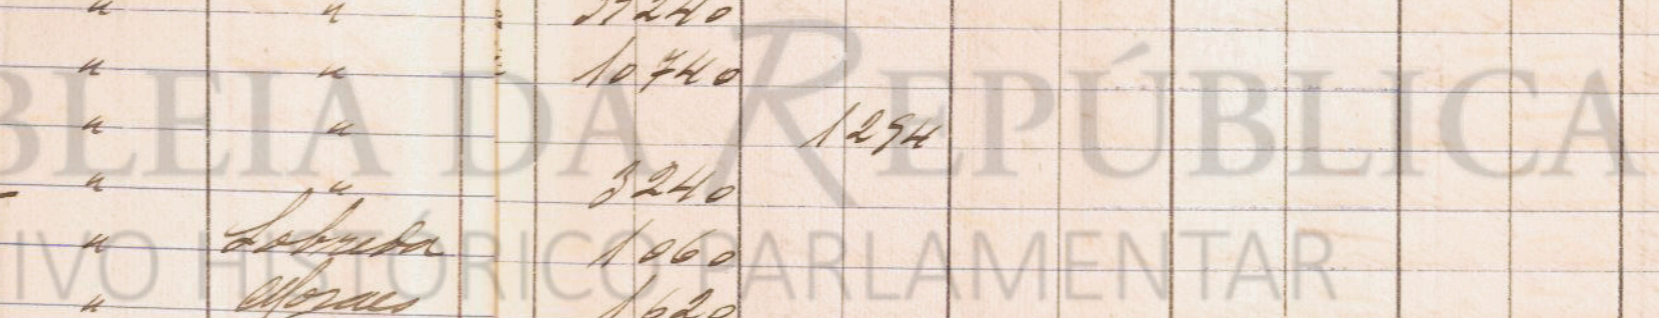 " " 37240
" " 10740
" " 1294
" " 3240
" Sobreda 1060
" Moraes 1620
BLEIA DA REPÚBLICA
IVO HISTÓRICO PARLAMENTAR